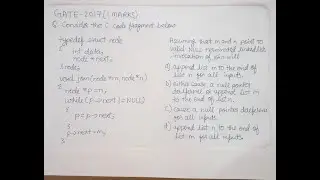 GATE-2017 (1 MARKS)
Q Consider the C code fragment below
typedef struct node
{
int data;
node *next;
} node;
void join(node *m, node *n)
{
node *p = n;
while (p->next != NULL)
{
p = p->next;
}
p->next = m;
}
Assuming that m and n point to
valid NULL terminated linked list
invocation of join will
a) append list m to the end
of list n for all inputs
b) either cause a null pointer
dereference or append list m
to the end of list n.
c) cause a null pointer dereference
for all inputs
d) append list n to the end of
list m for all inputs